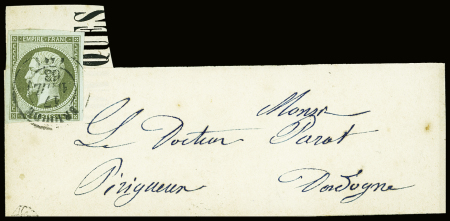 EMPIRE FRANC.
QUES
Monsr
Le Docteur Parat
Périgueux Dordogne